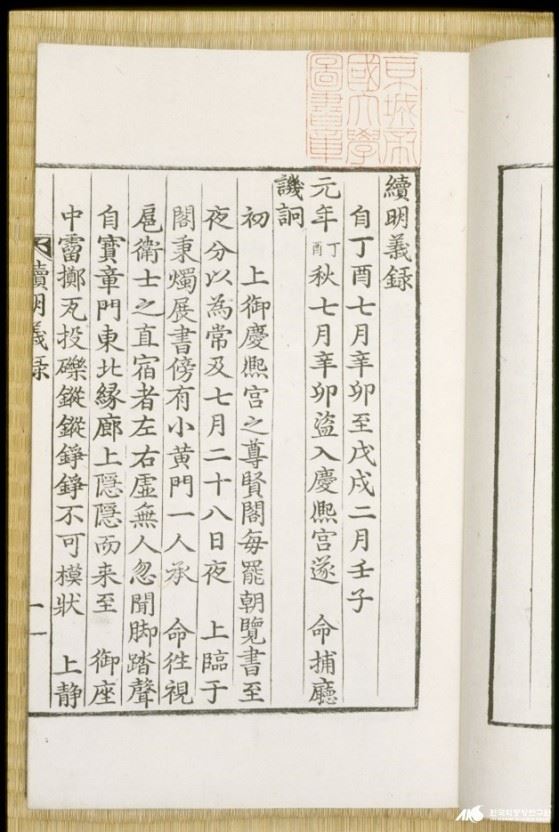 續明義錄
自丁酉七月辛卯至戊戌二月壬子
元年丁酉秋七月辛卯盜入慶熈宮遂 命捕廳
譏詗
初 上御慶熈宮之尊賢閣每罷朝覽書至
夜分以為常及七月二十八日夜 上臨于
閣秉燭展書傍有小黃門一人承 命徃視
扈衛士之直宿者左右虛無人忽聞脚踏聲
自寶章門東北緣廊上隱隱而来至 御座
中霤擲瓦投礫鏦鏦錚錚不可模狀 上静
續明義錄
一
京城帝
國大學
圖書章
한국학중앙연구원